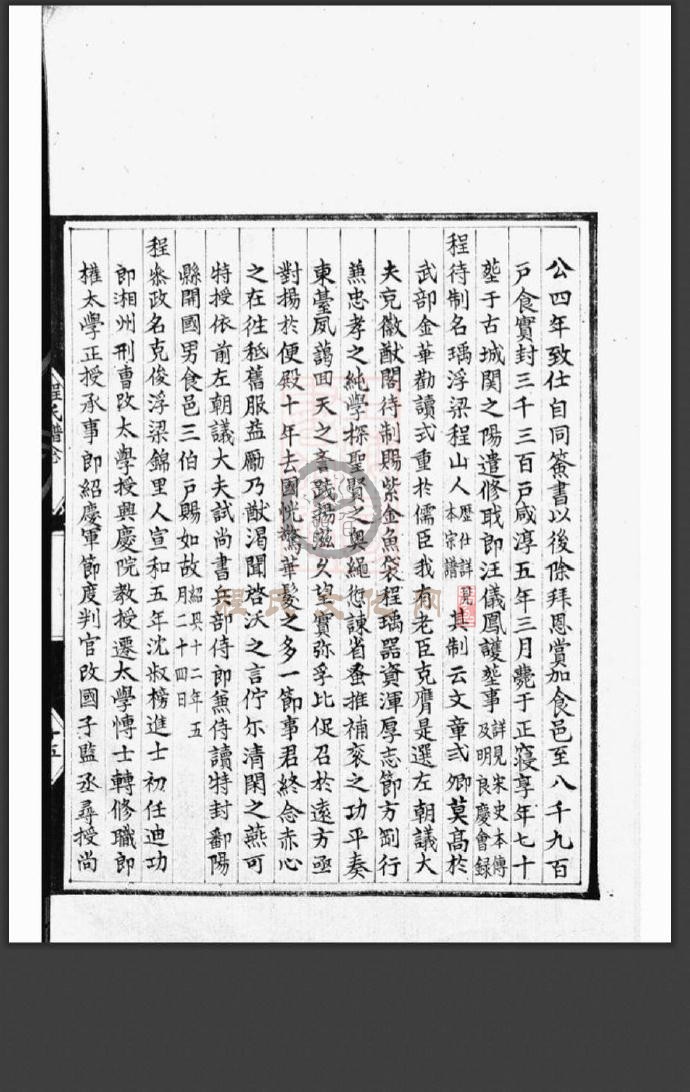 公四年致仕自同簽書以後除拜恩賞加食邑至八千九百
戶食實封三千三百戶咸淳五年三月薨于正寢享年七十
塟于古城関之陽遣修职郎汪儀鳳護塟事詳見宋史本傳及明良慶會録
程待制名瑀浮梁程山人歷仕詳見本宗譜其制云文章弍卿莫髙於
武部金華勸讀式重於儒臣我有老臣克膺是選左朝議大
夫充徽猷閣待制賜紫金魚袋程瑀器資渾厚志節方剛行
兼忠孝之純學探聖賢之奧繩愆諫省蚤推補衮之功平奏
東臺夙藹回天之譽践揚滋久望實弥孚比促召於遠方亟
對揚於便殿十年去國恍驚華髮之多一節事君終念赤心
之在徃祗舊服益勵乃猷渴聞啓沃之言佇尓清閑之燕可
特授依前左朝議大夫試尚書兵部侍郎兼侍讀特封鄱陽
縣開國男食邑三伯戶賜如故紹興十二年五月二十四日
程叅政名克俊浮梁錦里人宣和五年沈叔榜進士初任迪功
郎湘州刑曹改太學授興慶院教授遷太學博士轉修職郎
權太學正授承事郎紹慶軍節度判官改國子監丞尋授尚
程氏譜
十五
程氏文化网